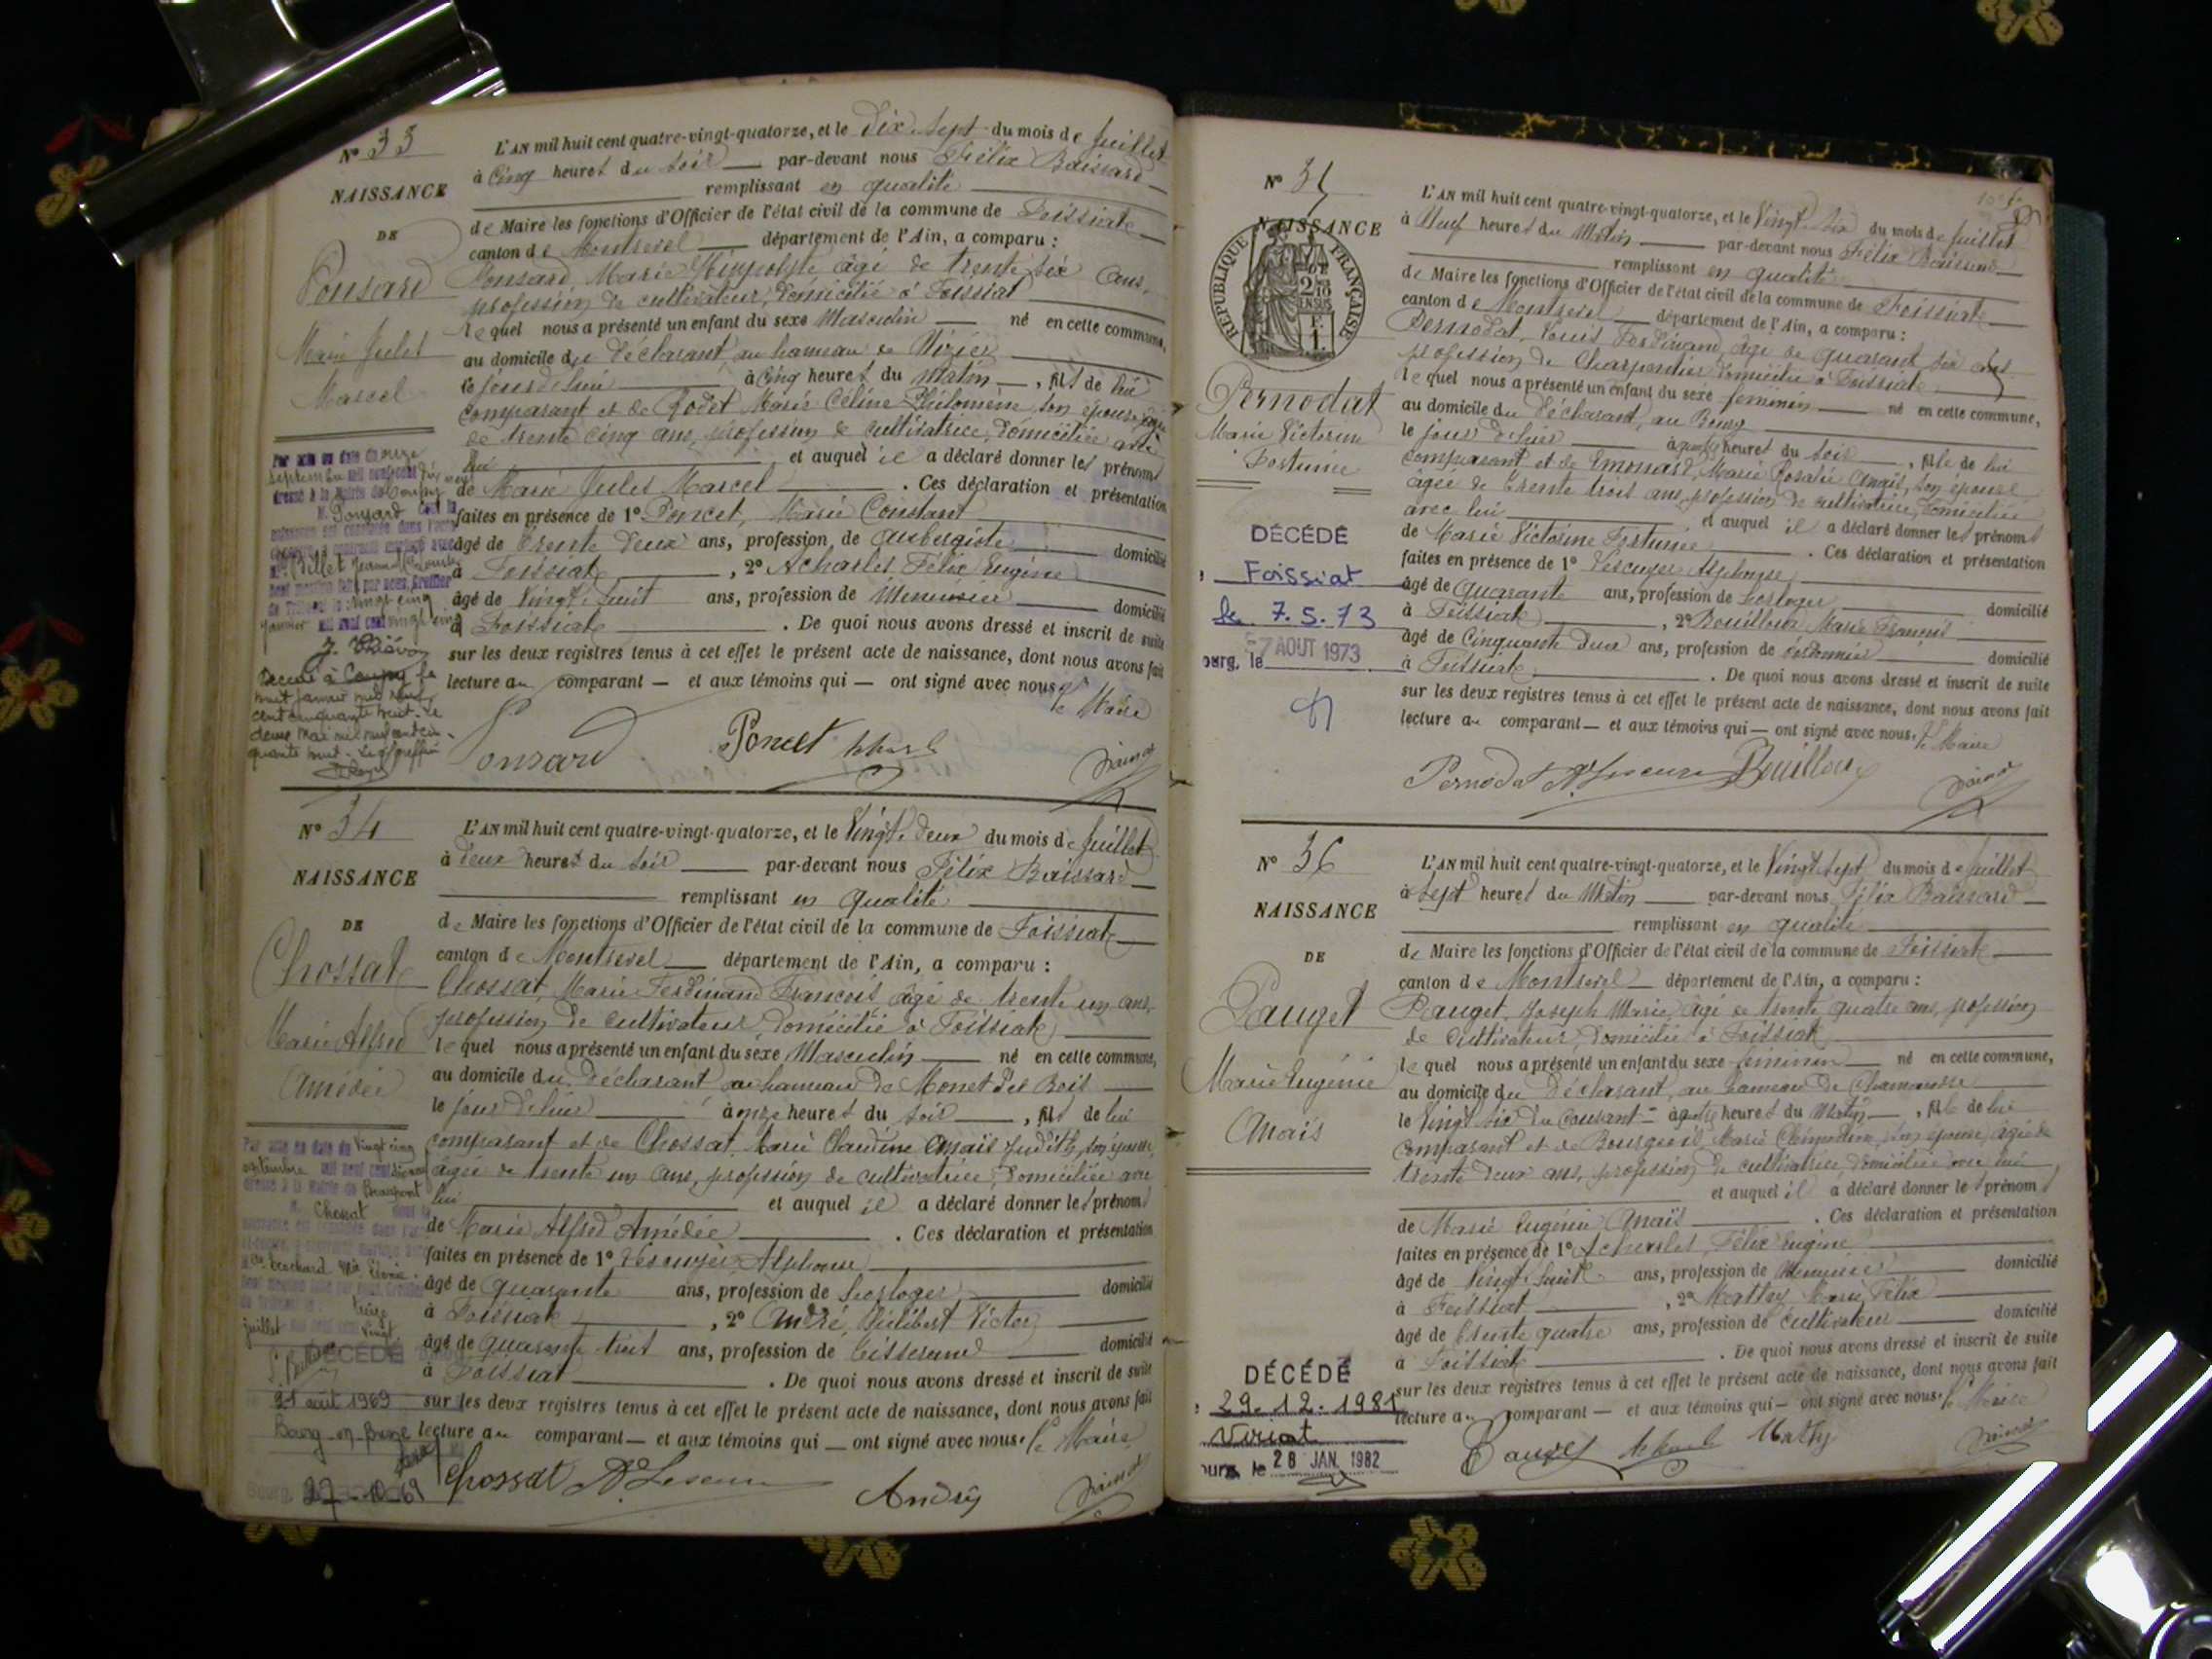 N° 33
NAISSANCE
DE
Ponsard
Marie Jules
Marcel
L'AN mil huit cent quatre-vingt-quatorze, et le Dix sept du mois de Juillet
à Cinq heures du soir par-devant nous Félix Baissard
remplissant en qualité
de Maire les fonctions d'Officier de l'état civil de la commune de Foissiat
canton de Montrevel département de l'Ain, a comparu :
Ponsard, Marie Hippolyte âgé de trente six ans,
profession de cultivateur, domicilié à Foissiat
lequel nous a présenté un enfant du sexe Masculin né en cette commune,
au domicile du déclarant, au hameau de
le jour d'hui à Cinq heures du Matin, fils de lui
comparant et de Rodet Marie Céline Philomène son épouse âgée
de trente cinq ans, profession de cultivatrice, domiciliée avec
lui et auquel il a déclaré donner les prénoms
de Marie Jules Marcel. Ces déclaration et présentation
faites en présence de 1° Poncet, Marie Constant
âgé de trente deux ans, profession de aubergiste domicilié
à Foissiat, 2° Acharles Félix Eugène
âgé de Vingt huit ans, profession de Menuisier domicilié
à Foissiat. De quoi nous avons dressé et inscrit de suite
sur les deux registres tenus à cet effet le présent acte de naissance, dont nous avons fait
lecture au comparant — et aux témoins qui — ont signé avec nous. le Maire
Ponsard Poncet
Par acte en date du onze
septembre mil neuf cent dix neuf
dressé à la Mairie de Coupy
M. Ponsard dont la
a contracté mariage avec
Mlle Billet
vingt cinq
janvier mil neuf cent vingt cinq
Décédé à Coupy le
huit janvier mil neuf
cent cinquante huit. Le
deux mai mil neuf cent cin-
quante huit. Le Greffier
N° 34
NAISSANCE
DE
Chossat
Marie Alfred
Amédée
L'AN mil huit cent quatre-vingt-quatorze, et le Vingt deux du mois de Juillet
à deux heures du soir par-devant nous Félix Baissard
remplissant en qualité
de Maire les fonctions d'Officier de l'état civil de la commune de Foissiat
canton de Montrevel département de l'Ain, a comparu :
Chossat, Marie Ferdinand François âgé de trente un ans,
profession de cultivateur, domicilié à Foissiat
lequel nous a présenté un enfant du sexe Masculin né en cette commune,
au domicile du déclarant au hameau de Monet des Bois
le jour d'hier à onze heures du soir, fils de lui
comparant et de Chossat, Marie Claudine Anaïs Judith, son épouse,
âgée de trente un ans, profession de cultivatrice, domiciliée avec
lui et auquel il a déclaré donner les prénoms
de Marie Alfred Amédée. Ces déclaration et présentation
faites en présence de 1° Lescuyer Alphonse
âgé de quarante ans, profession de horloger domicilié
à Foissiat, 2° André, Philibert Victor
âgé de quarante trois ans, profession de tisserand domicilié
à Foissiat. De quoi nous avons dressé et inscrit de suite
sur les deux registres tenus à cet effet le présent acte de naissance, dont nous avons fait
lecture au comparant — et aux témoins qui — ont signé avec nous. le Maire
Chossat André
Par acte en date du Vingt cinq
septembre mil neuf cent
dressé à la Mairie de Beaupont
M. Chossat
juillet
DÉCÉDÉ
21 août 1969
Bourg-en-Bresse
Bourg, 27-10-69
N° 35
NAISSANCE
RÉPUBLIQUE FRANÇAISE
2 10
EN SUS
F.
1.
Pernodat
Marie Victorine
Fortunée
DÉCÉDÉ
Foissiat
le 7.5.73
7 AOUT 1973
ourg, le
L'AN mil huit cent quatre-vingt-quatorze, et le Vingt six du mois de Juillet
à Neuf heures du Matin par-devant nous Félix Baissard
remplissant en qualité
de Maire les fonctions d'Officier de l'état civil de la commune de Foissiat
canton de Montrevel département de l'Ain, a comparu :
Pernodat, Louis Ferdinand âgé de quarante six ans
profession de Charpentier domicilié à Foissiat
lequel nous a présenté un enfant du sexe féminin né en cette commune,
au domicile du déclarant, au Bourg
le jour d'hier à quatre heures du soir, fille de lui
comparant et de Emonard, Marie Rosalie Anaïs, son épouse
âgée de trente trois ans, profession de cultivatrice, domiciliée
avec lui et auquel il a déclaré donner les prénoms
de Marie Victorine Fortunée. Ces déclaration et présentation
faites en présence de 1° Lescuyer Alphonse
âgé de quarante ans, profession de horloger domicilié
à Foissiat, 2° Bouilloux Marie François
âgé de Cinquante deux ans, profession de domicilié
à Foissiat. De quoi nous avons dressé et inscrit de suite
sur les deux registres tenus à cet effet le présent acte de naissance, dont nous avons fait
lecture au comparant — et aux témoins qui — ont signé avec nous. le Maire
Pernodat Bouilloux
N° 36
NAISSANCE
DE
Pauget
Marie Eugénie
Anaïs
DÉCÉDÉ
29.12.1981
Viriat
ourg, le 28 JAN. 1982
L'AN mil huit cent quatre-vingt-quatorze, et le Vingt sept du mois de Juillet
à Sept heures du Matin par-devant nous Félix Baissard
remplissant en qualité
de Maire les fonctions d'Officier de l'état civil de la commune de Foissiat
canton de Montrevel département de l'Ain, a comparu :
Pauget, Joseph Marie, âgé de trente quatre ans, profession
de cultivateur, domicilié à Foissiat
lequel nous a présenté un enfant du sexe féminin né en cette commune,
au domicile du déclarant, au hameau de
le Vingt six du courant à quatre heures du Matin, fille de lui
comparant et de Bourgeois Marie Clémentine, son épouse, âgée de
trente deux ans, profession de cultivatrice, domiciliée avec lui,
et auquel il a déclaré donner les prénoms
de Marie Eugénie Anaïs. Ces déclaration et présentation
faites en présence de 1° Acharles, Félix Eugène
âgé de Vingt huit ans, profession de Menuisier domicilié
à Foissiat, 2° Mathy Marie Félix
âgé de trente quatre ans, profession de cultivateur domicilié
à Foissiat. De quoi nous avons dressé et inscrit de suite
sur les deux registres tenus à cet effet le présent acte de naissance, dont nous avons fait
lecture au comparant — et aux témoins qui — ont signé avec nous. le Maire
Pauget Mathy